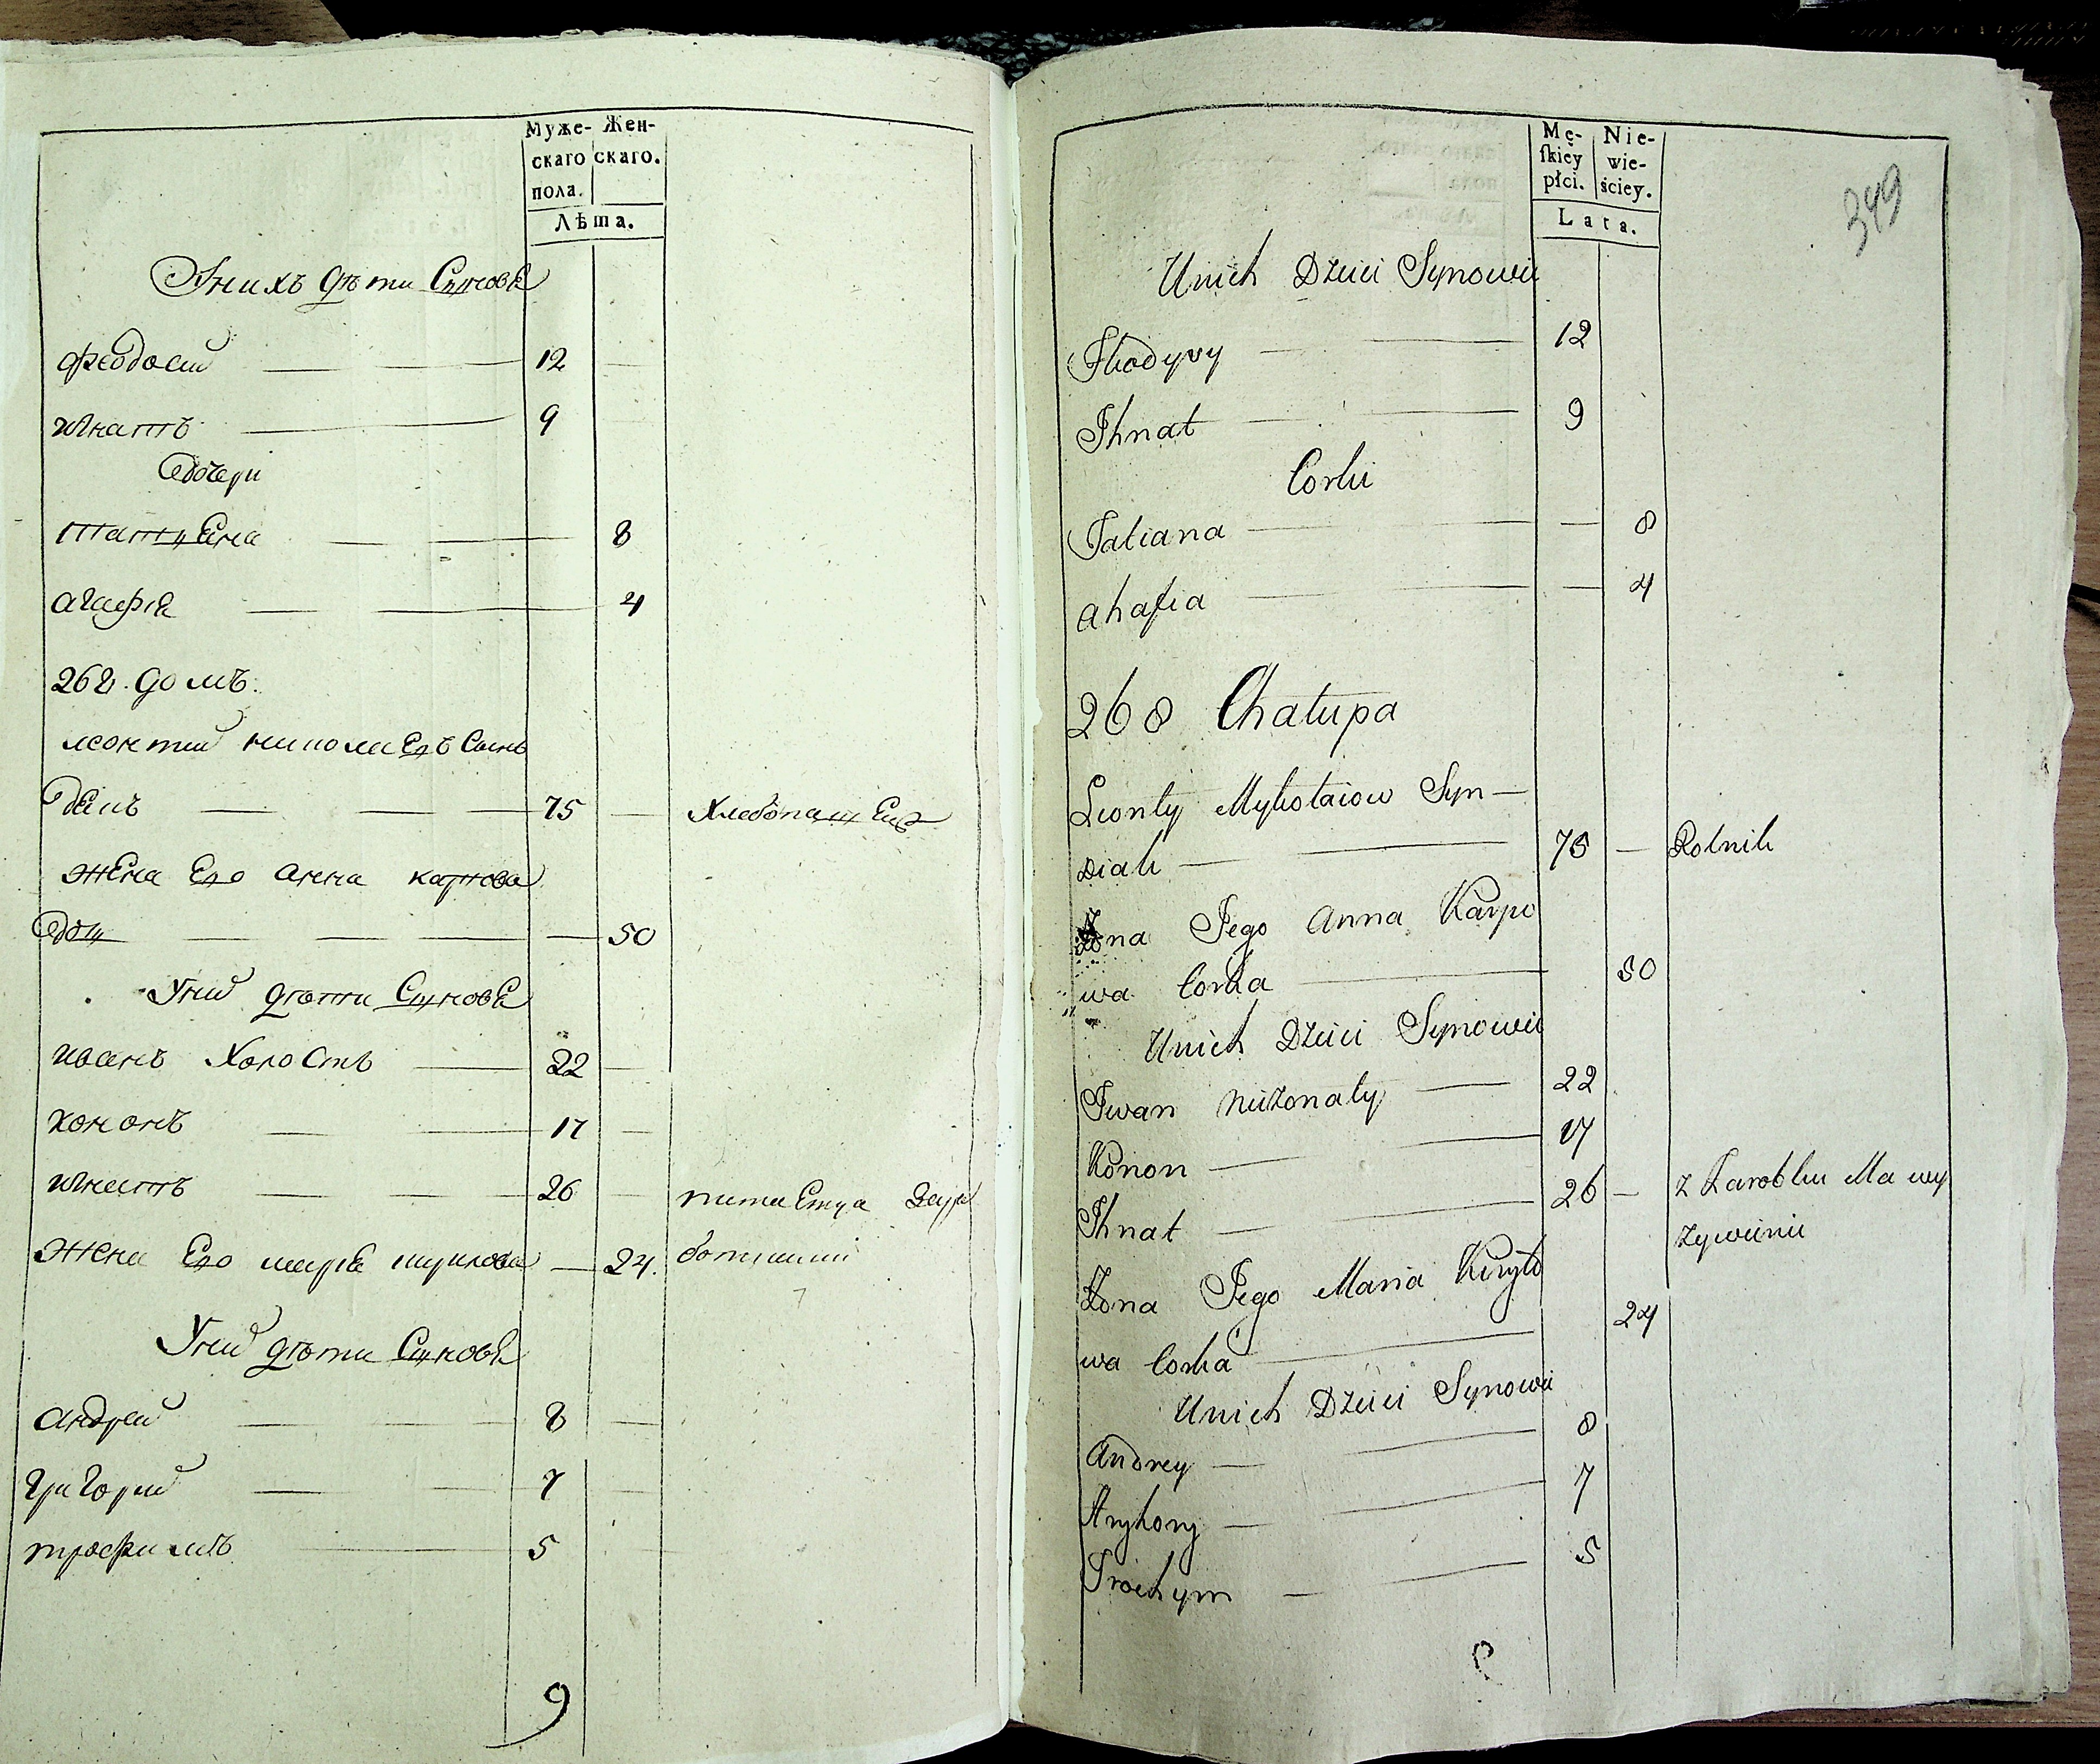 Муже- Жен-
скаго скаго.
пола.
Лѣта.
У нихъ дѣти Сынове
Феодосий 12
игнатъ 9
Дочери
татиЕна 8
агафіе 4
268. домъ.
леонтий николаЕвъ Сынъ
деякъ 75 Хлебопашецъ
жена Его анна карпова
дощ 50
У ний дѣти Сынове
иванъ Холостъ 22
кононъ 17
игнатъ 26 питаЕтца Зара
Жена Его маріе курилова 24. ботками
У ний дѣти Сынове
андрей 8
григорий 7
трофимъ 5
9
349
Mę- Nie-
skiey wie-
płci. ściey.
Lata.
U nich Dzieci Synowie
Fteodyzy 12
Ihnat 9
Corki
Tatiana 8
ahafia 4
268 Chałupa
Leonty Mykołaiow Syn
Diak 75 Rolnik
Żona Jego Anna Karpo
wa Corka 50
U nich Dzieci Synowie
Iwan nieżonaty 22
Konon 17
Ihnat 26 z Zarobku Ma wy
żywienie
Żona Jego Maria Kiryło
wa Corka 24
U nich Dzieci Synowie
Andrey 8
Hryhory 7
Trochym 5
9